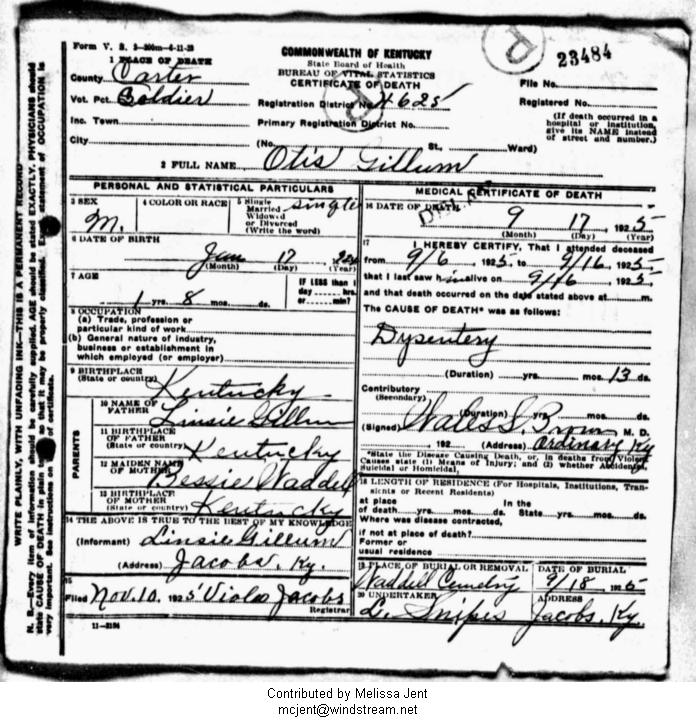 Form V. S. 3-300m-4-11-23
COMMONWEALTH OF KENTUCKY
State Board of Health
BUREAU OF VITAL STATISTICS
CERTIFICATE OF DEATH
23484
1 PLACE OF DEATH
County Carter
Vot. Pct. Soldier
Inc. Town
City
Registration District No. 4625
Primary Registration District No.
(No. St., Ward)
File No.
Registered No.
(If death occurred in a
hospital or institution,
give its NAME instead
of street and number.)
2 FULL NAME Otis Gillum
PERSONAL AND STATISTICAL PARTICULARS
3 SEX
M.
4 COLOR OR RACE
5 Single
Married
Widowed
or Divorced
(Write the word)
single
6 DATE OF BIRTH
Jan 17
(Month) (Day) (Year)
7 AGE
1 yrs. 8 mos. ds.
IF LESS than 1
day hrs.
or min?
8 OCCUPATION
(a) Trade, profession or
particular kind of work
(b) General nature of industry,
business or establishment in
which employed (or employer)
9 BIRTHPLACE
(State or country) Kentucky
PARENTS
10 NAME OF
FATHER Linsie Gillum
11 BIRTHPLACE
OF FATHER
(State or country) Kentucky
12 MAIDEN NAME
OF MOTHER Bessie Waddell
13 BIRTHPLACE
OF MOTHER
(State or country) Kentucky
14 THE ABOVE IS TRUE TO THE BEST OF MY KNOWLEDGE
(Informant) Linsie Gillum
(Address) Jacobs, Ky.
15
Filed Nov. 10, 1925 Viola Jacobs
Registrar
11-3184
MEDICAL CERTIFICATE OF DEATH
16 DATE OF DEATH
9 17, 1925
(Month) (Day) (Year)
17
I HEREBY CERTIFY, That I attended deceased
from 9/6 1925 to 9/16, 1925
that I last saw him alive on 9/16, 1925
and that death occurred on the date stated above at m.
The CAUSE OF DEATH* was as follows:
Dysentery
(Duration) yrs. mos. 13 ds.
Contributory
(Secondary)
(Duration) yrs. mos. ds.
(Signed) M. D.
, 192 (Address) Ordinary, Ky
*State the Disease Causing Death, or, in deaths from Violent
Causes state (1) Means of Injury; and (2) whether Accidental,
Suicidal or Homicidal.
18 LENGTH OF RESIDENCE (For Hospitals, Institutions, Tran-
sients or Recent Residents)
at place In the
of death yrs. mos. ds. State yrs. mos. ds.
Where was disease contracted,
if not at place of death?
Former or
usual residence
19 PLACE OF BURIAL OR REMOVAL
Waddell Cemetry
DATE OF BURIAL
9/18, 1925
20 UNDERTAKER
L. Snipes
ADDRESS
Jacobs, Ky.
WRITE PLAINLY, WITH UNFADING INK—THIS IS A PERMANENT RECORD
N. B.—Every item of information should be carefully supplied. AGE should be stated EXACTLY. PHYSICIANS should
state CAUSE OF DEATH in plain terms, so that it may be properly classified. Exact statement of OCCUPATION is
very important. See instructions on back of certificate.
Contributed by Melissa Jent
mcjent@windstream.net